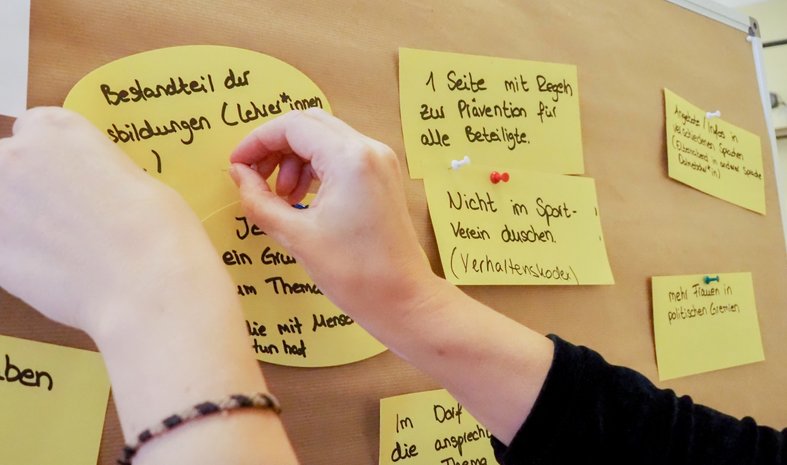 Bestandteil der
sbildungen (Lehrer*innen
.)
1 Seite mit Regeln
zur Prävention für
alle Beteiligte.
Nicht im Sport-
Verein duschen.
(Verhaltenskodex)
Angebote / Infos in
verschiedenen Sprachen
(Elternabend in anderer Sprache
Dolmetscher*in)
Je
ein Gru
um Thema
die mit Mensch
tun hat
mehr Frauen in
politischen Gremien
ben
Im Dorf
die ansprech
Thema